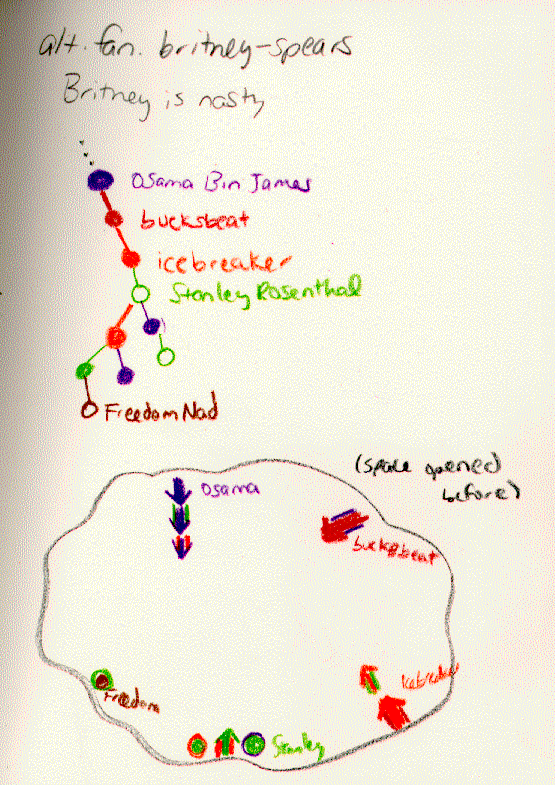 alt.fan.britney-spears
Britney is nasty
Osama Bin James
bucksbeat
icebreaker
Stanley Rosenthal
FreedomNad
(space opened
before)
Osama
bucksbeat
Icebreaker
Freedom
Stanley